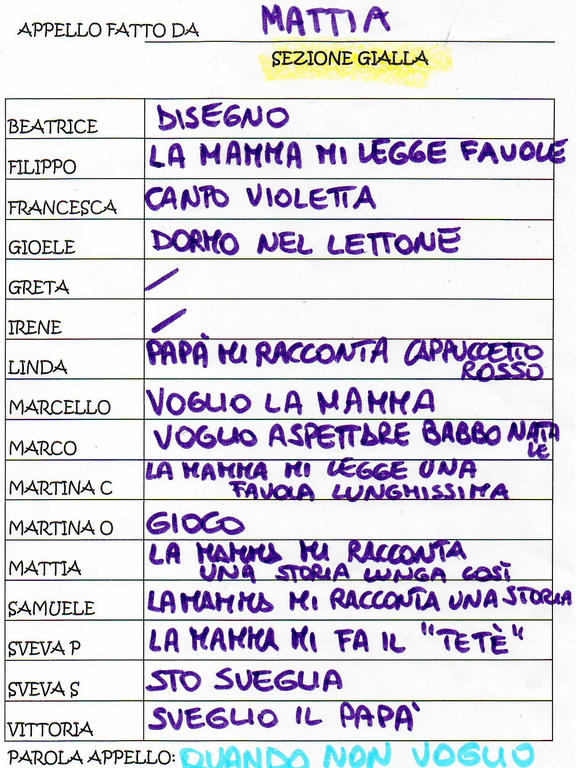 APPELLO FATTO DA MATTIA
SEZIONE GIALLA
BEATRICE DISEGNO
FILIPPO LA MAMMA MI LEGGE FAVOLE
FRANCESCA CANTO VIOLETTA
GIOELE DORMO NEL LETTONE
GRETA /
IRENE /
LINDA PAPÀ MI RACCONTA CAPPUCCETTO
ROSSO
MARCELLO VOGLIO LA MAMMA
MARCO VOGLIO ASPETTARE BABBO NATA
LE
MARTINA C LA MAMMA MI LEGGE UNA
FAVOLA LUNGHISSIMA
MARTINA O GIOCO
MATTIA LA MAMMA MI RACCONTA
UNA STORIA LUNGA COSÌ
SAMUELE LA MAMMA MI RACCONTA UNA STORIA
SVEVA P LA MAMMA MI FA IL "TETÈ"
SVEVA S STO SVEGLIA
VITTORIA SVEGLIO IL PAPA'
PAROLA APPELLO: QUANDO NON VOGLIO